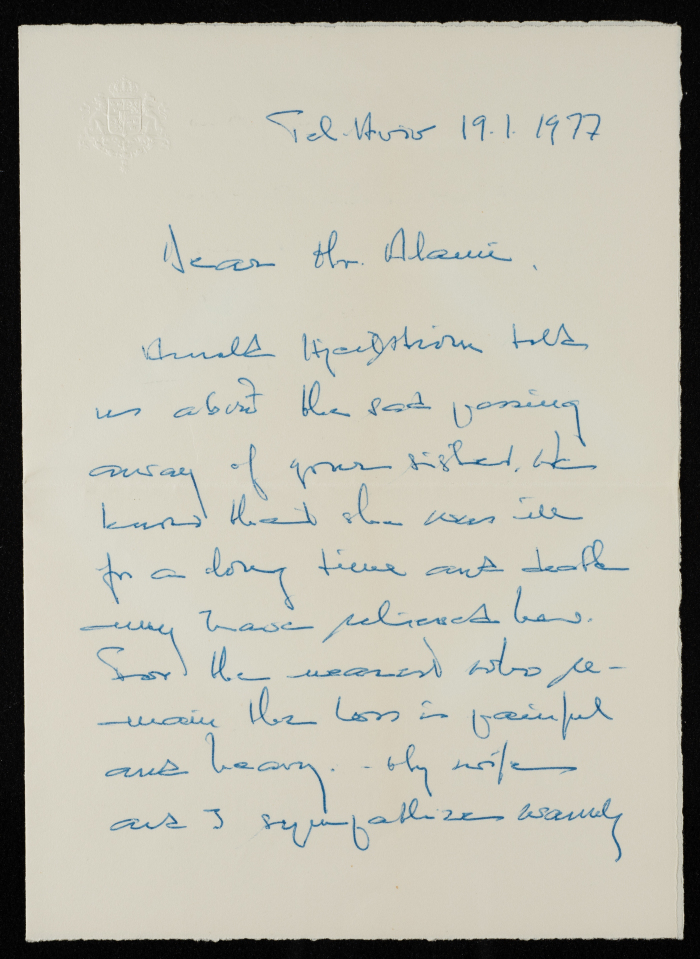 Tel-Aviv 19.1.1977
Dear Mr. Alami.
Arnold Hjertström told
us about the sad passing
away of your sister. We
know that she was ill
for a long time and death
may have relieved her.
For the nearest who re-
main the loss is painful
and heavy. - My wife
and I sympathize warmly